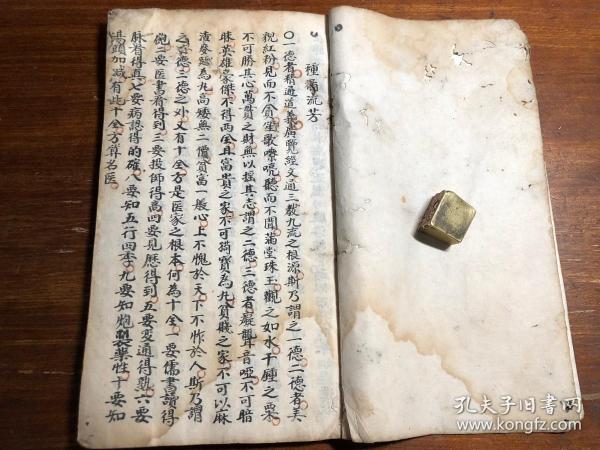 種杏流芳
〇一德者精通道義廣覽經文通三教九流之根源斯乃謂之一德二德者美
貌紅粉見而不貪笙歌嘹喨聽而不聞滿堂珠玉觀之如水千鍾之粟
不可勝其心萬貫之財無以搖其志謂之二德三德者癡聾音啞不可賠
昧英雄豪傑不得兩全耳富貴之家不可猗寶為九貧賤之家不可以麻
渣參為九高矮無二價貧富一般心上不愧於天下不怍於人斯乃謂
之三德三德之外又有十全方是医家之根本何為十全一要儒書讀得
砲二要医書看得到三要投師得高四要見歷得到五要変通得熟六要
脉看得真七要病認得的確八要知五行四季九要知炮製藥性十要知
湯頭加减有此十全方算名医
孔夫子旧书网
www.kongfz.com